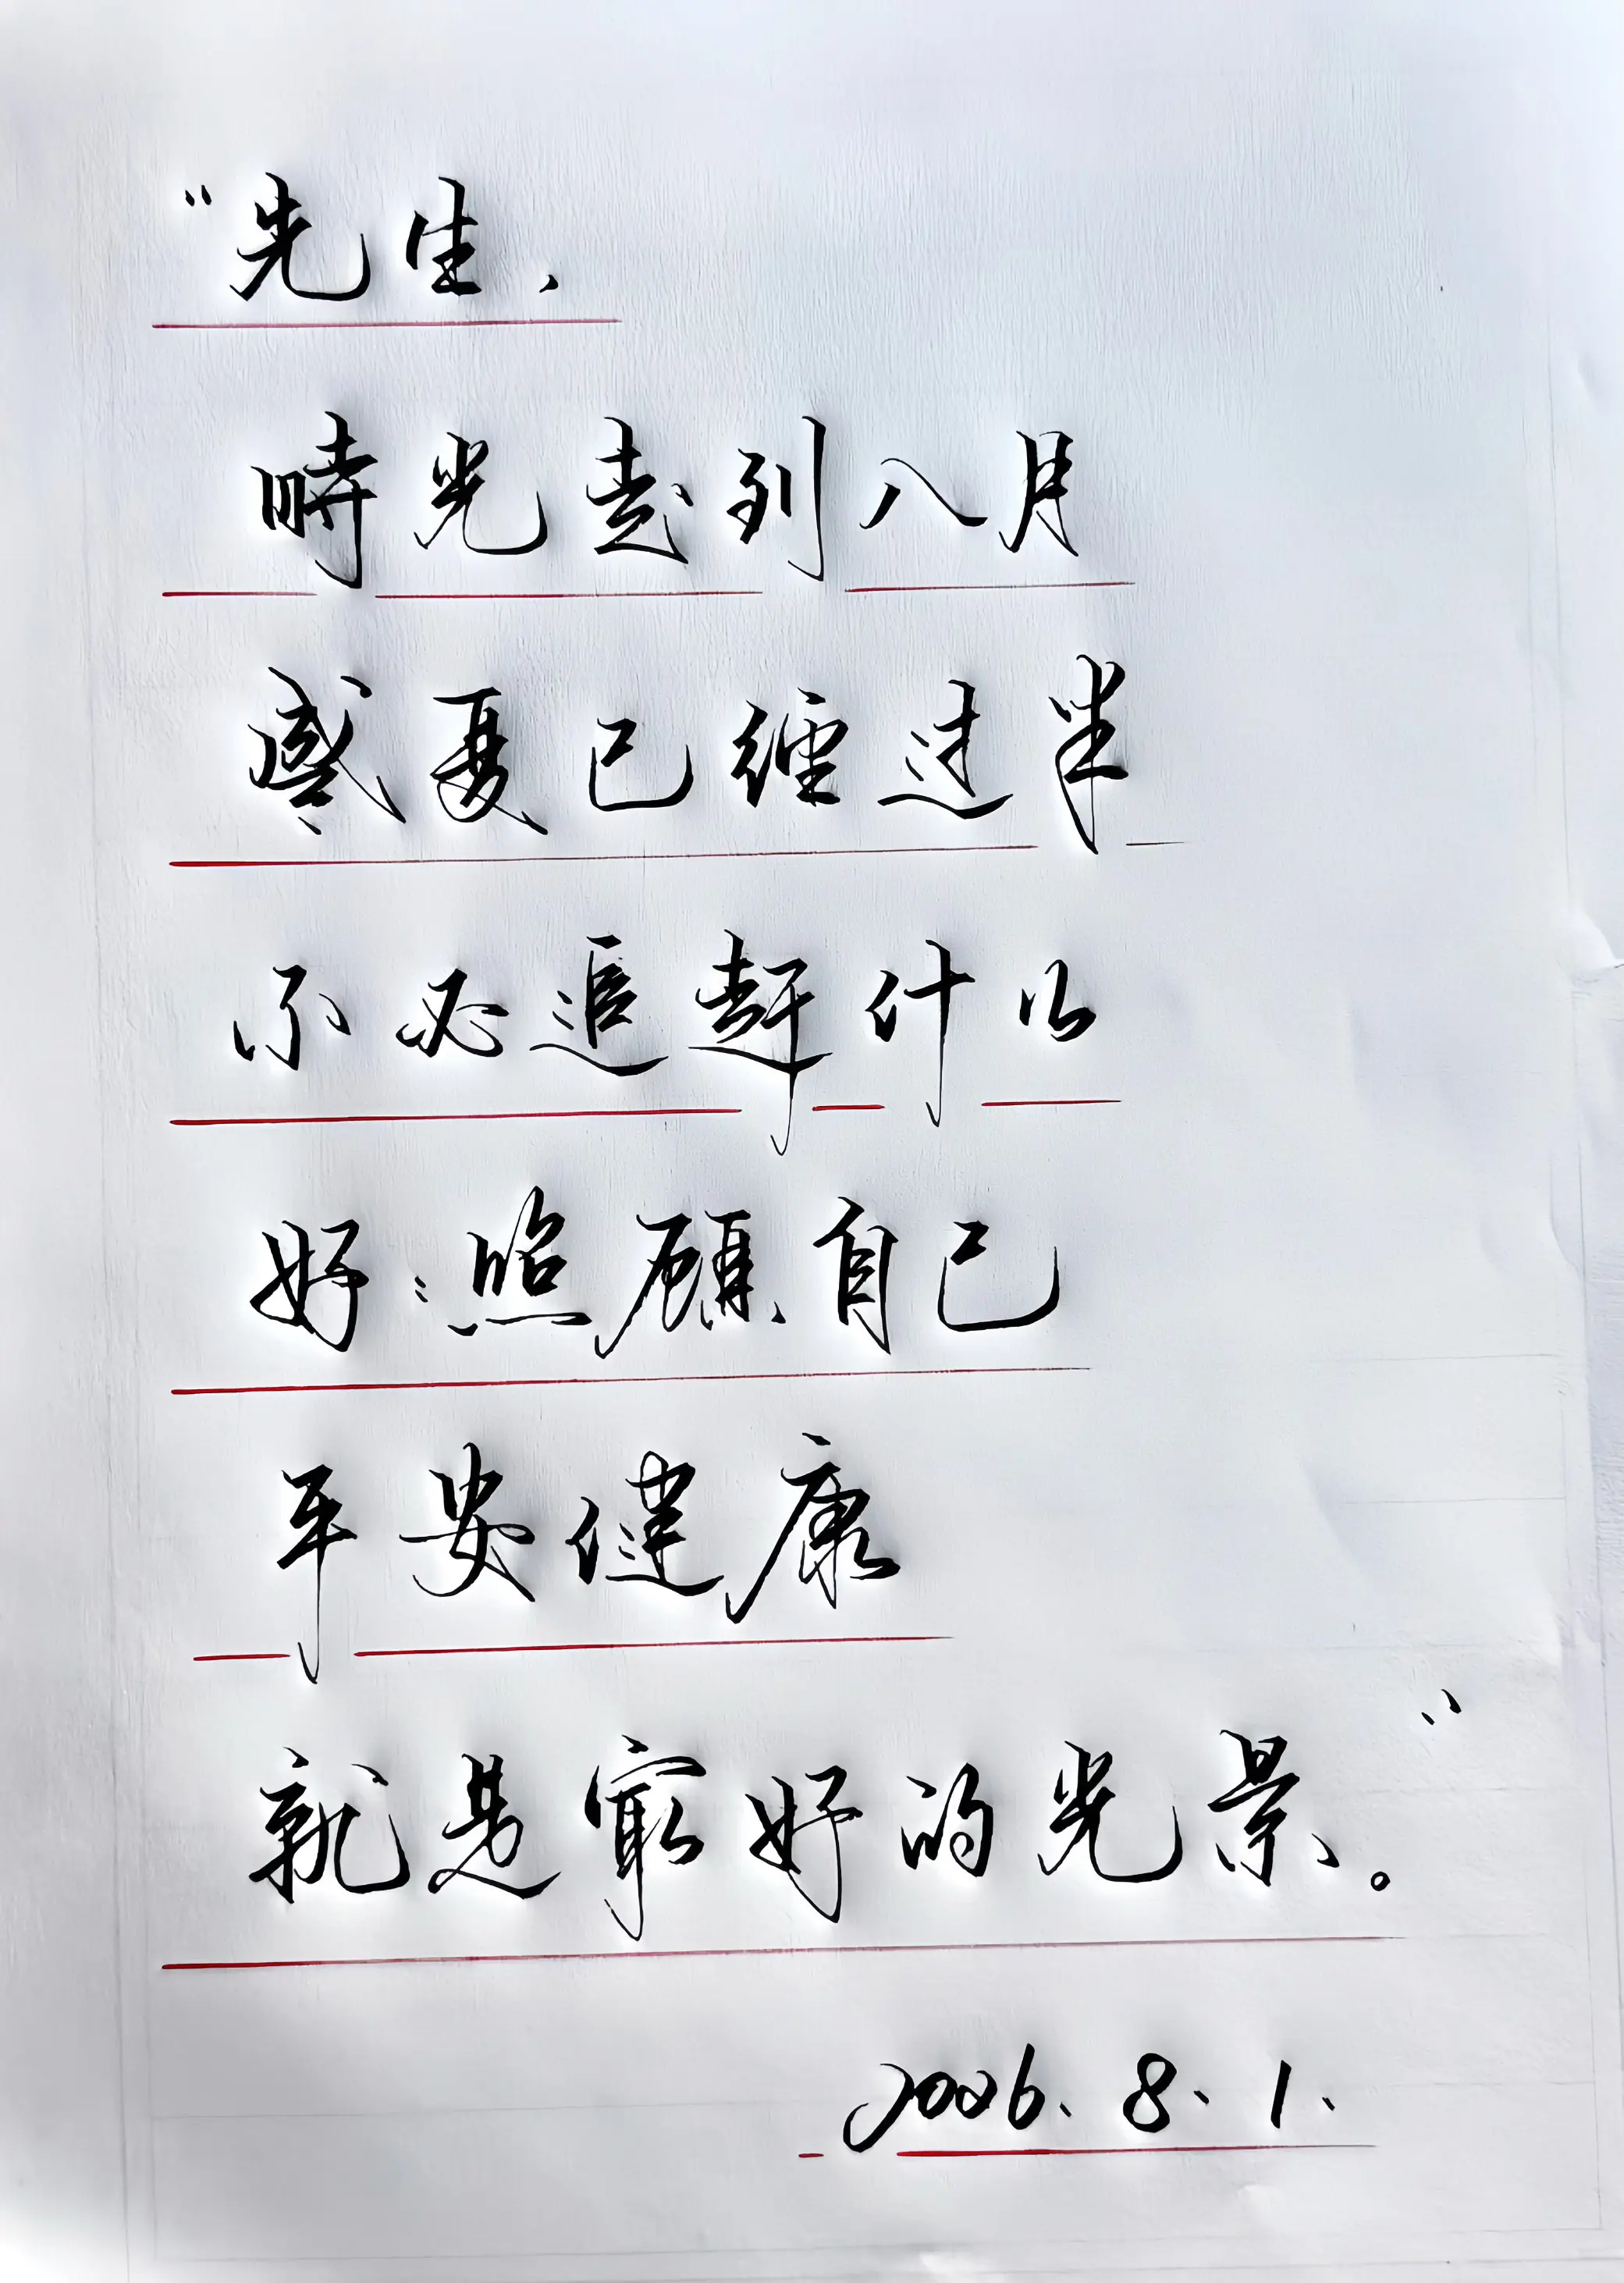 “先生，
時光走到八月
盛夏已经过半
不必追趕什么
好：照顾自己
平安健康
就是最好的光景。”
2006.8.1.